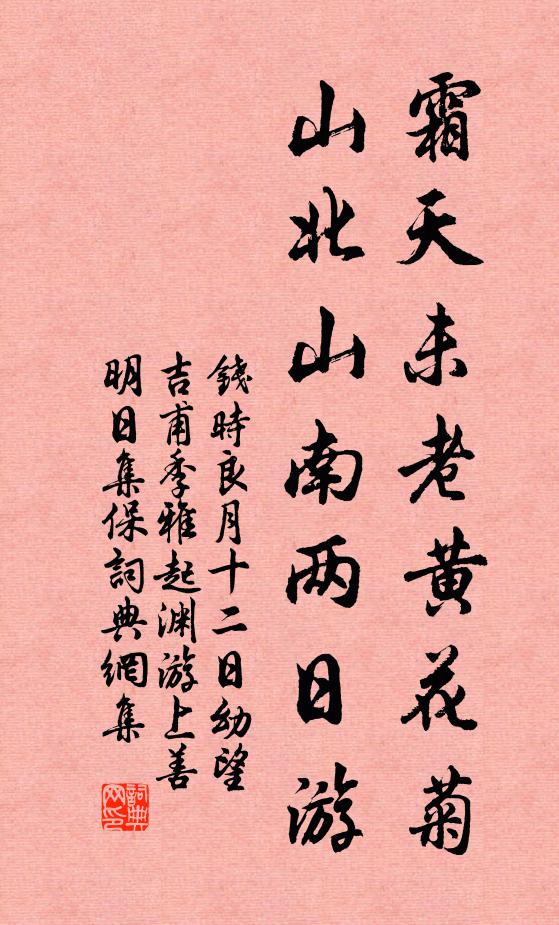 霜天未老黄花菊
山北山南两日游
錢時良月十二日幼望
吉甫季雅起渊游上善
明日集保詞典網集
詞典网印